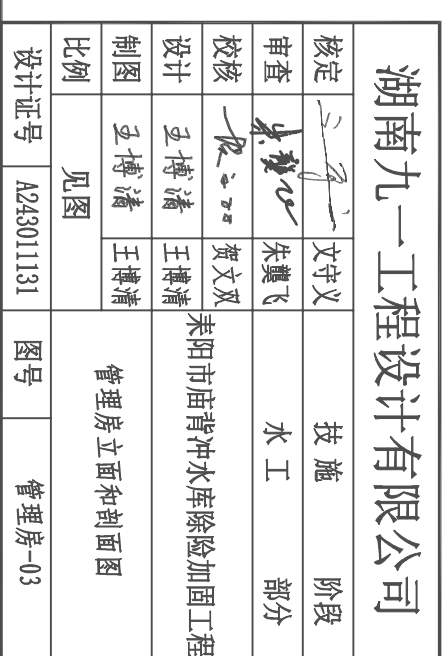 湖南九一工程设计有限公司
核定 文守义 技施 阶段
审查 朱龑飞 水工 部分
校核 贺文双 耒阳市庙背冲水库除险加固工程
设计 王博清 王博清
制图 王博清 王博清 管理房立面和剖面图
比例 见图
设计证号 A243011131 图号 管理房-03